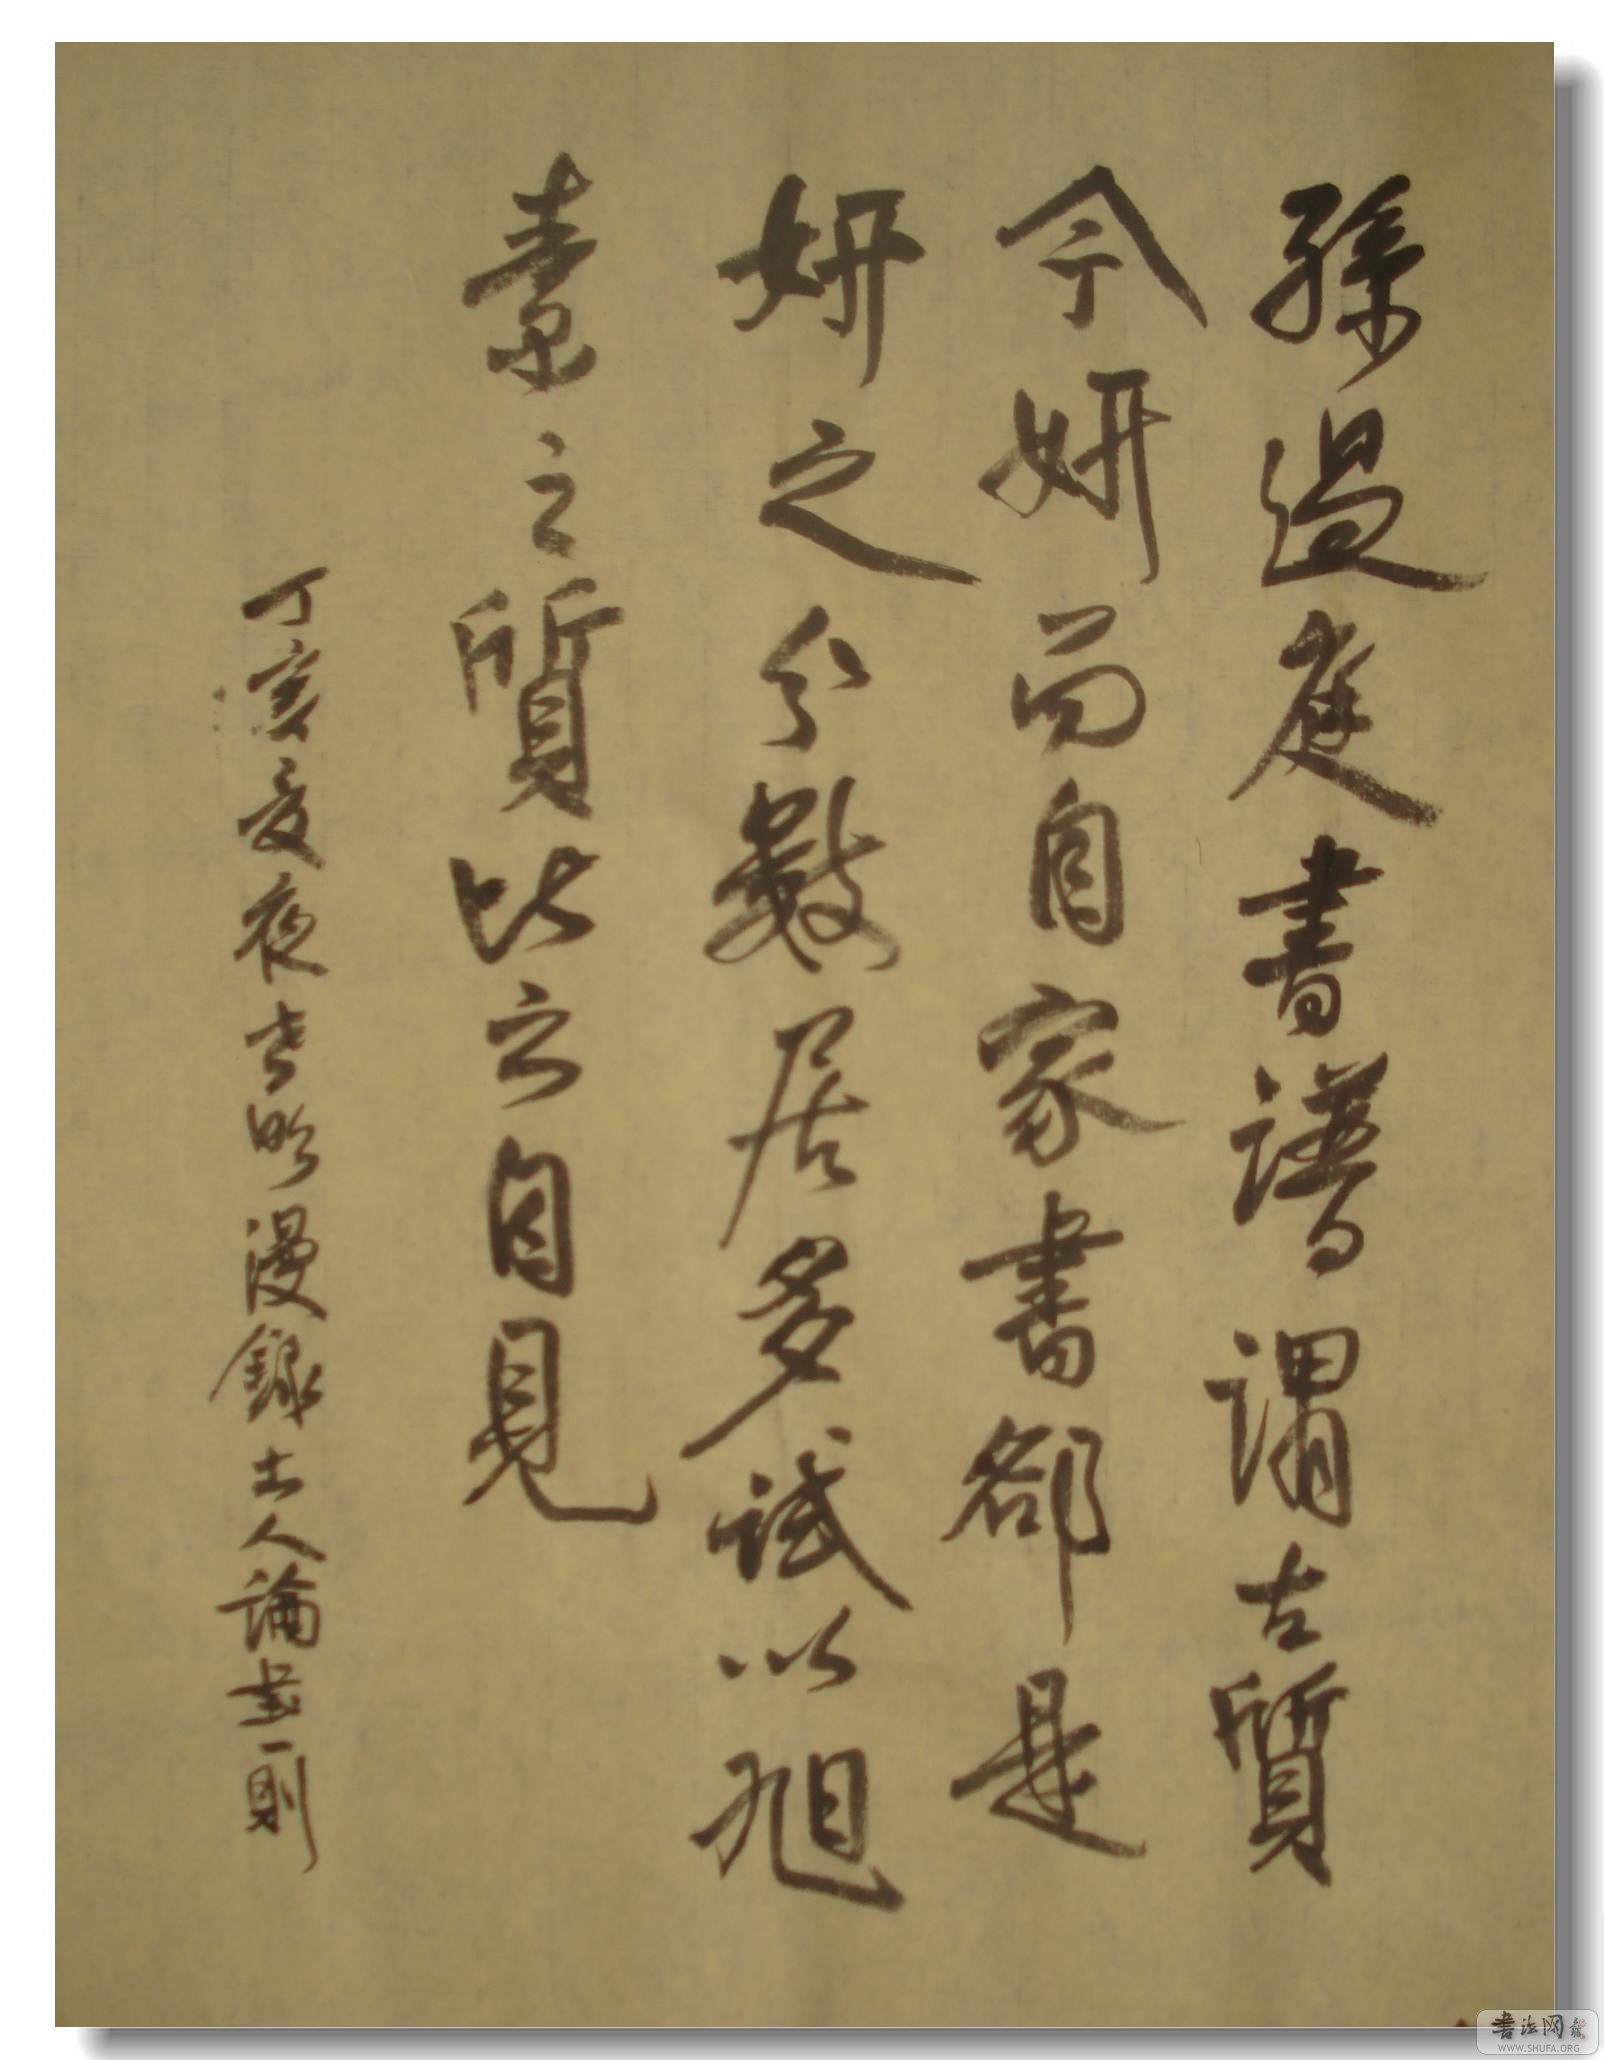 孫過庭書譜謂古質
今妍而自家書卻是
妍之分數居多試以旭
素之質比之自見
丁亥夏夜書時漫錄古人論書一則
書法网
WWW.SHUFA.ORG